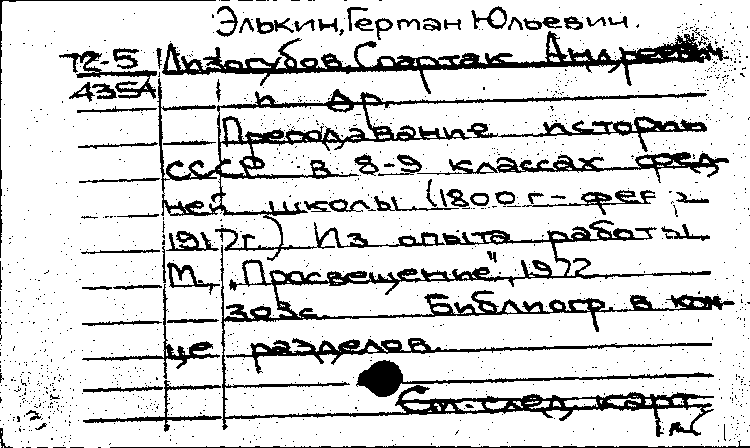 Элькин, Герман Юльевич.
72-5 Лизогубов, Спартак Андреевич
435А и др.
Преподавание истории
СССР в 8-9 классах сред-
ней школы. (1800 г - фев
1917 г.) Из опыта работы.
М., „Просвещение", 1972
303 с. Библиогр. в кон-
це разделов.
См. след. карт.